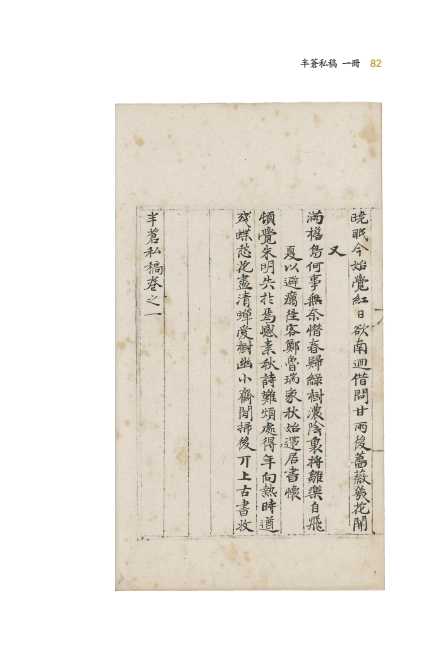 半蒼私稿 一冊 82
曉眠今始覺紅日欲南迴借問甘雨後薔薇幾花開
又
滿榻鳥何事無余惜春歸綠樹濃陰裏將雛樂自飛
夏以避癘住客鄭魯瑞家秋始還居書懷
頓覺朱明失於焉感素秋詩難煩處得年向熱時遒
殘蝶愁花盡清蟬愛樹幽小齋閒掃後丌上古書收
半蒼私稿卷之一